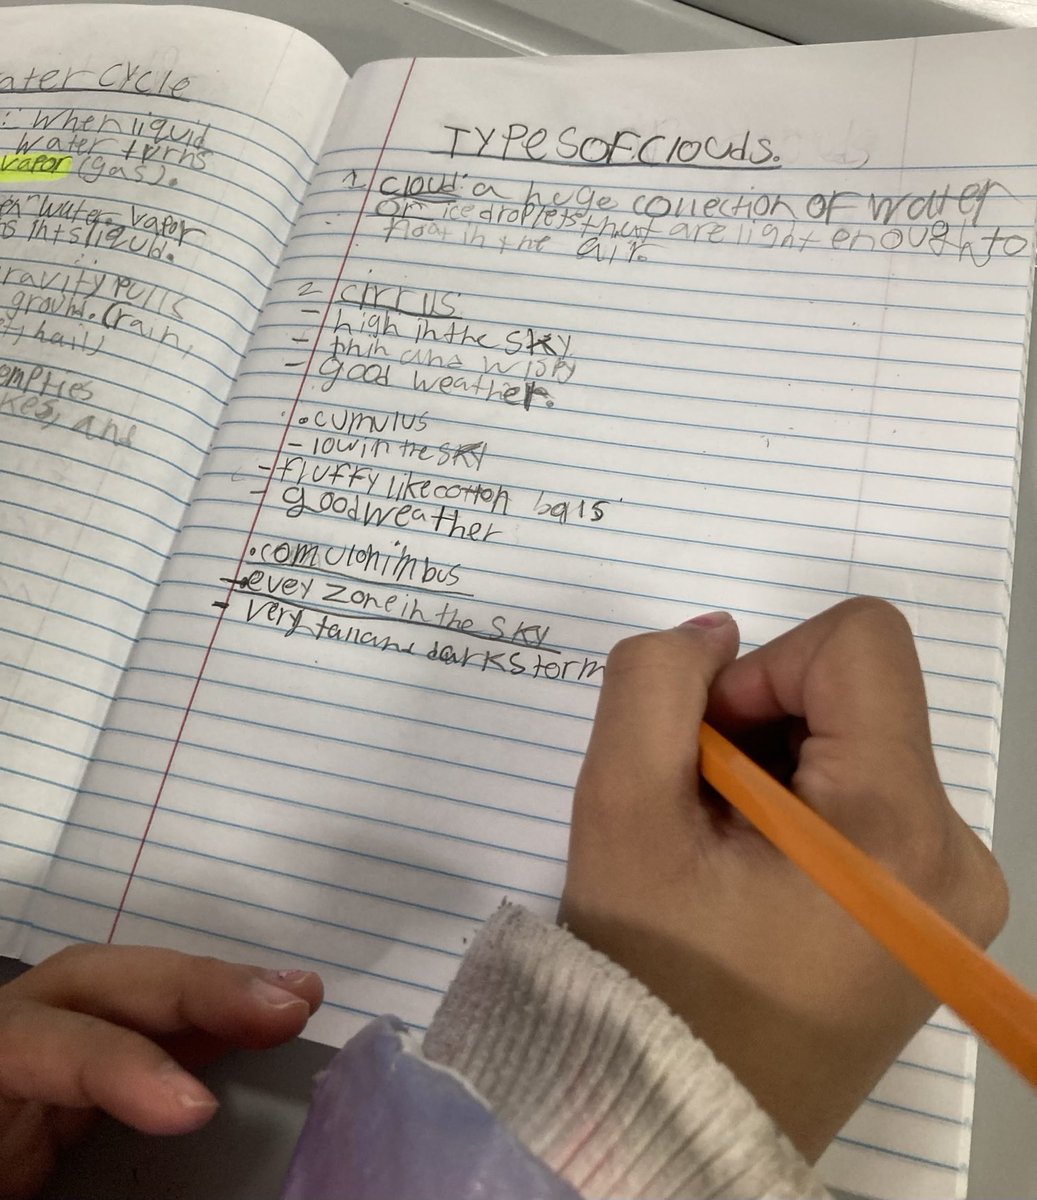 ater Cycle
: When liquid
water turns
vapor (gas).
water vapor
liquid.
ravity pulls
ground. (rain,
hail)
empties
kes, and
Types of Clouds.
1 cloud: a huge collection of water
or ice droplets that are light enough to
float in the air.
2 cirrus
- high in the sky
- thin and wispy
- good weather.
• cumulus
- low in the sky
- fluffy like cotton balls
- good weather
• comulonimbus
- evey zone in the sky
- very tall and dark storm